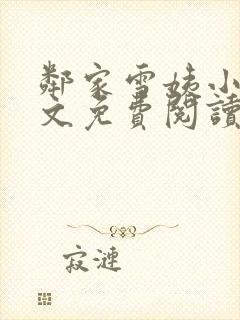 鄰家雪姨小
文免費閱讀
寂漣